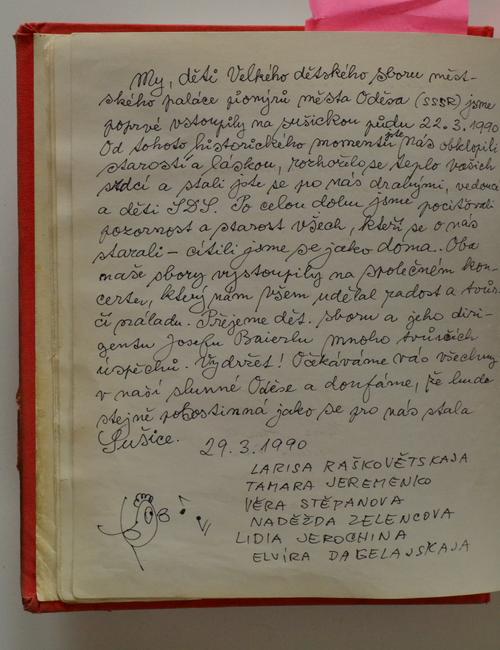 My, děti Velkého dětského sboru měst-
ského paláce pionýrů města Oděsa (SSSR) jsme
poprvé vstoupily na sušickou půdu 22.3.1990
Od tohoto historického momentu jste nás obklopili
starostí a láskou, rozhořelo se teplo vašich
srdcí a stali jste se pro nás drahými, vedoucí
a děti SDS. Po celou dobu jsme pociťovali
pozornost a starost všech, kteří se o nás
starali – cítili jsme se jako doma. Oba
naše sbory vystoupily na společném kon-
certev, který nám všem udělal radost a tvůr-
čí náladu. Přejeme dět. sboru a jeho diri-
gentu Josefu Baierlu mnoho tvůrčích
úspěchů. Vydržet! Očekáváme vás všechny
v naší slunné Oděse a doufáme, že bude
stejně pohostinná jako se pro nás stala
Sušice.
29.3.1990
LARISA RAŠKOVĚTSKAJA
TAMARA JEREMENKO
VĚRA STĚPANOVA
NADĚŽDA ZELENCOVA
LIDIA JEROCHINA
ELVÍRA DAGELAJSKAJA